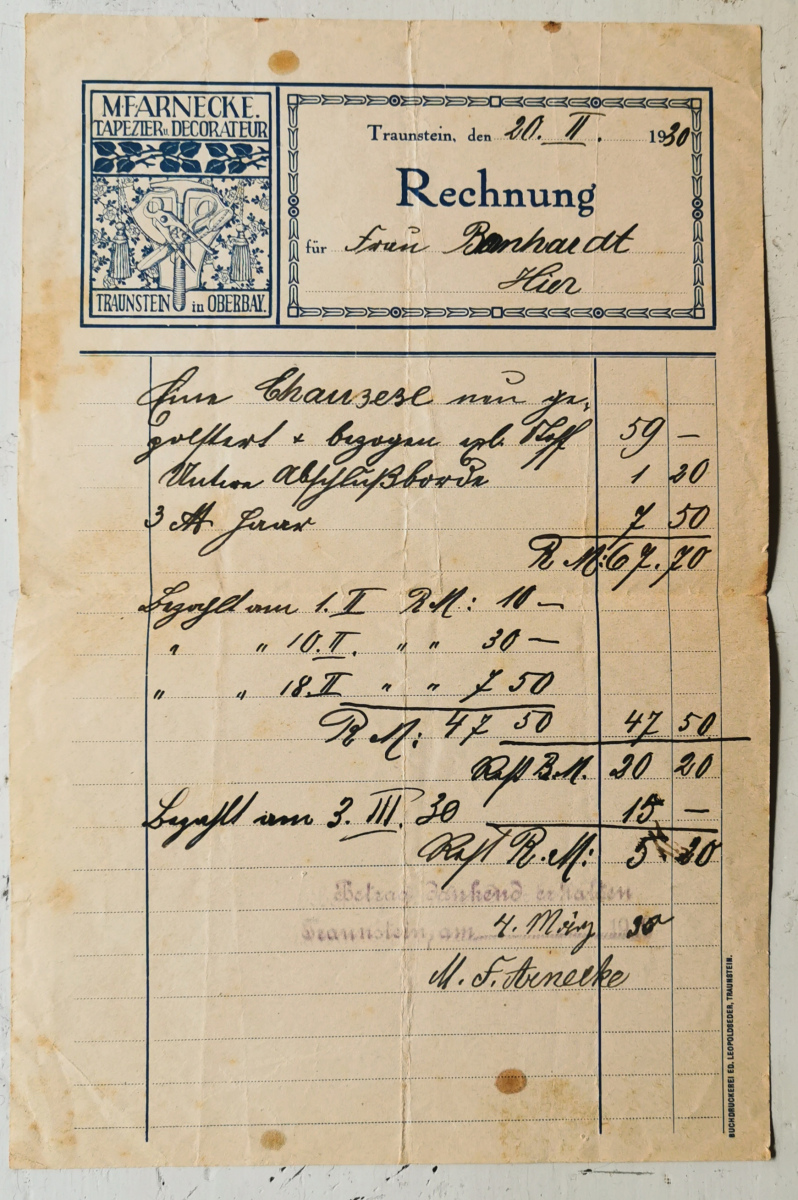 M.F.ARNECKE.
TAPEZIER u. DECORATEUR
TRAUNSTEIN in OBERBAY.
Traunstein, den 20. II. 1930
Rechnung
für Frau Bonhardt
Hier
Eine Chaiselse neu ge-
polstert + bezogen exl. Stoff 59 —
Untere Abschlußborde 1 20
3 ℔ Haar 7 50
R M: 67.70
Bezahlt am 1. II R M: 10 —
" " 10. II. " " 30 —
" " 18. II " " 7 50
R M: 47 50 47 50
Rest R.M. 20 20
Bezahlt am 3. III. 30 15 —
Rest R.M: 5 20
Betrag dankend erhalten
Traunstein, am 4. März 1930
M. F. Arnecke
BUCHDRUCKEREI ED. LEOPOLDSEDER, TRAUNSTEIN.